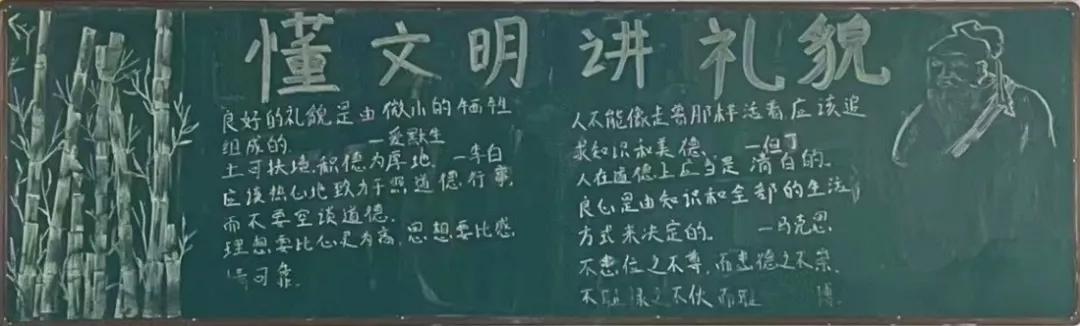 懂文明讲礼貌
良好的礼貌是由微小的牺牲
组成的. —爱默生
土可扶境.积德为厚地. —李白
应该热心地致力于照道德行事,
而不要空谈道德.
理想要比心灵为高.思想要比感
可靠.
人不能像走兽那样活着,应该追
求知识和美德. —但丁
人在道德上应当是清白的.
良心是由知识和全部的生活
方式来决定的. —马克思
不患位之不尊,而患德之不崇.
不耻禄之不伙 而耻 博.